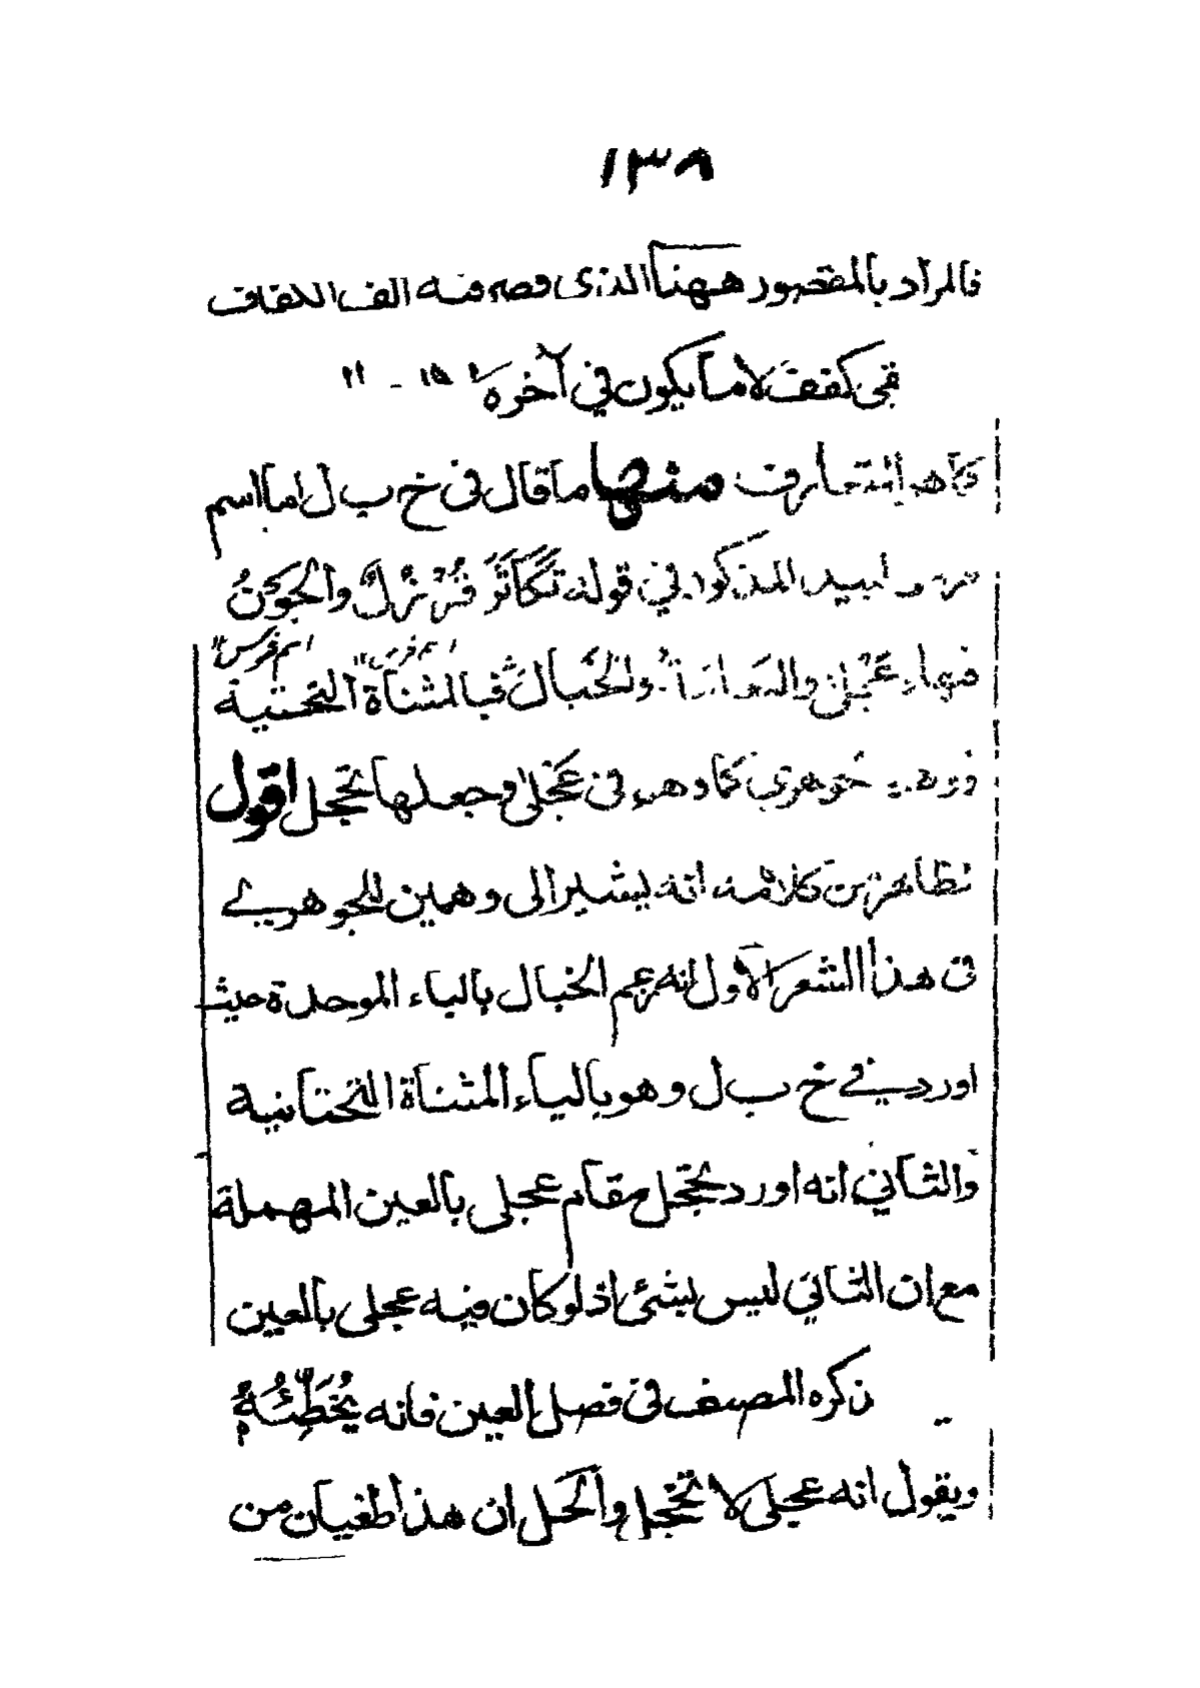 ١٣٨
فالمراد بالمقصور ههنا الذى قصر فيه الف اللفاف
فهى كففف لا ما يكون في آخره
منها ما قال فى خ ب ل اما اسم
لبيد المذكور في قوله تَكَاثَرَ قُرْزُلٌ والجَوْنُ
فيها، عَجْلى والنعامة والخَبالُ فبالمثناة التحتية
اسم فرس" اسم فرس"
الجوهري كما وهم فى عَجْلى وجعلها تحجل اقول
ظاهر من كلامه انه يشير الى وهمين للجوهرى
فى هذا الشعر الاول انه زعم الخبال بالباء الموحدة حيث
اورد فى خ ب ل وهو بالياء المثناة التحتانية
والثاني انه اورد تحجل مقام عجلى بالعين المهملة
مع ان الثاني ليس بشئ اذ لو كان فيه عجلى بالعين
ذكره المصنف فى فصل العين فانه يُخَطِّئُهُ
ويقول انه عجلى لا تحجل والحل ان هذا طغيان من